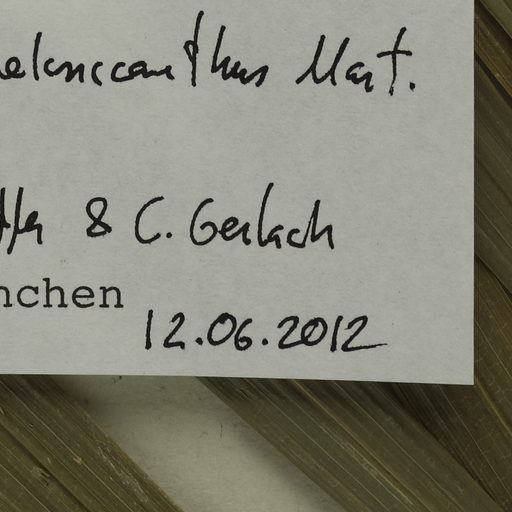 elanacanthus Mart.
& C. Gerlach
nchen
12.06.2012